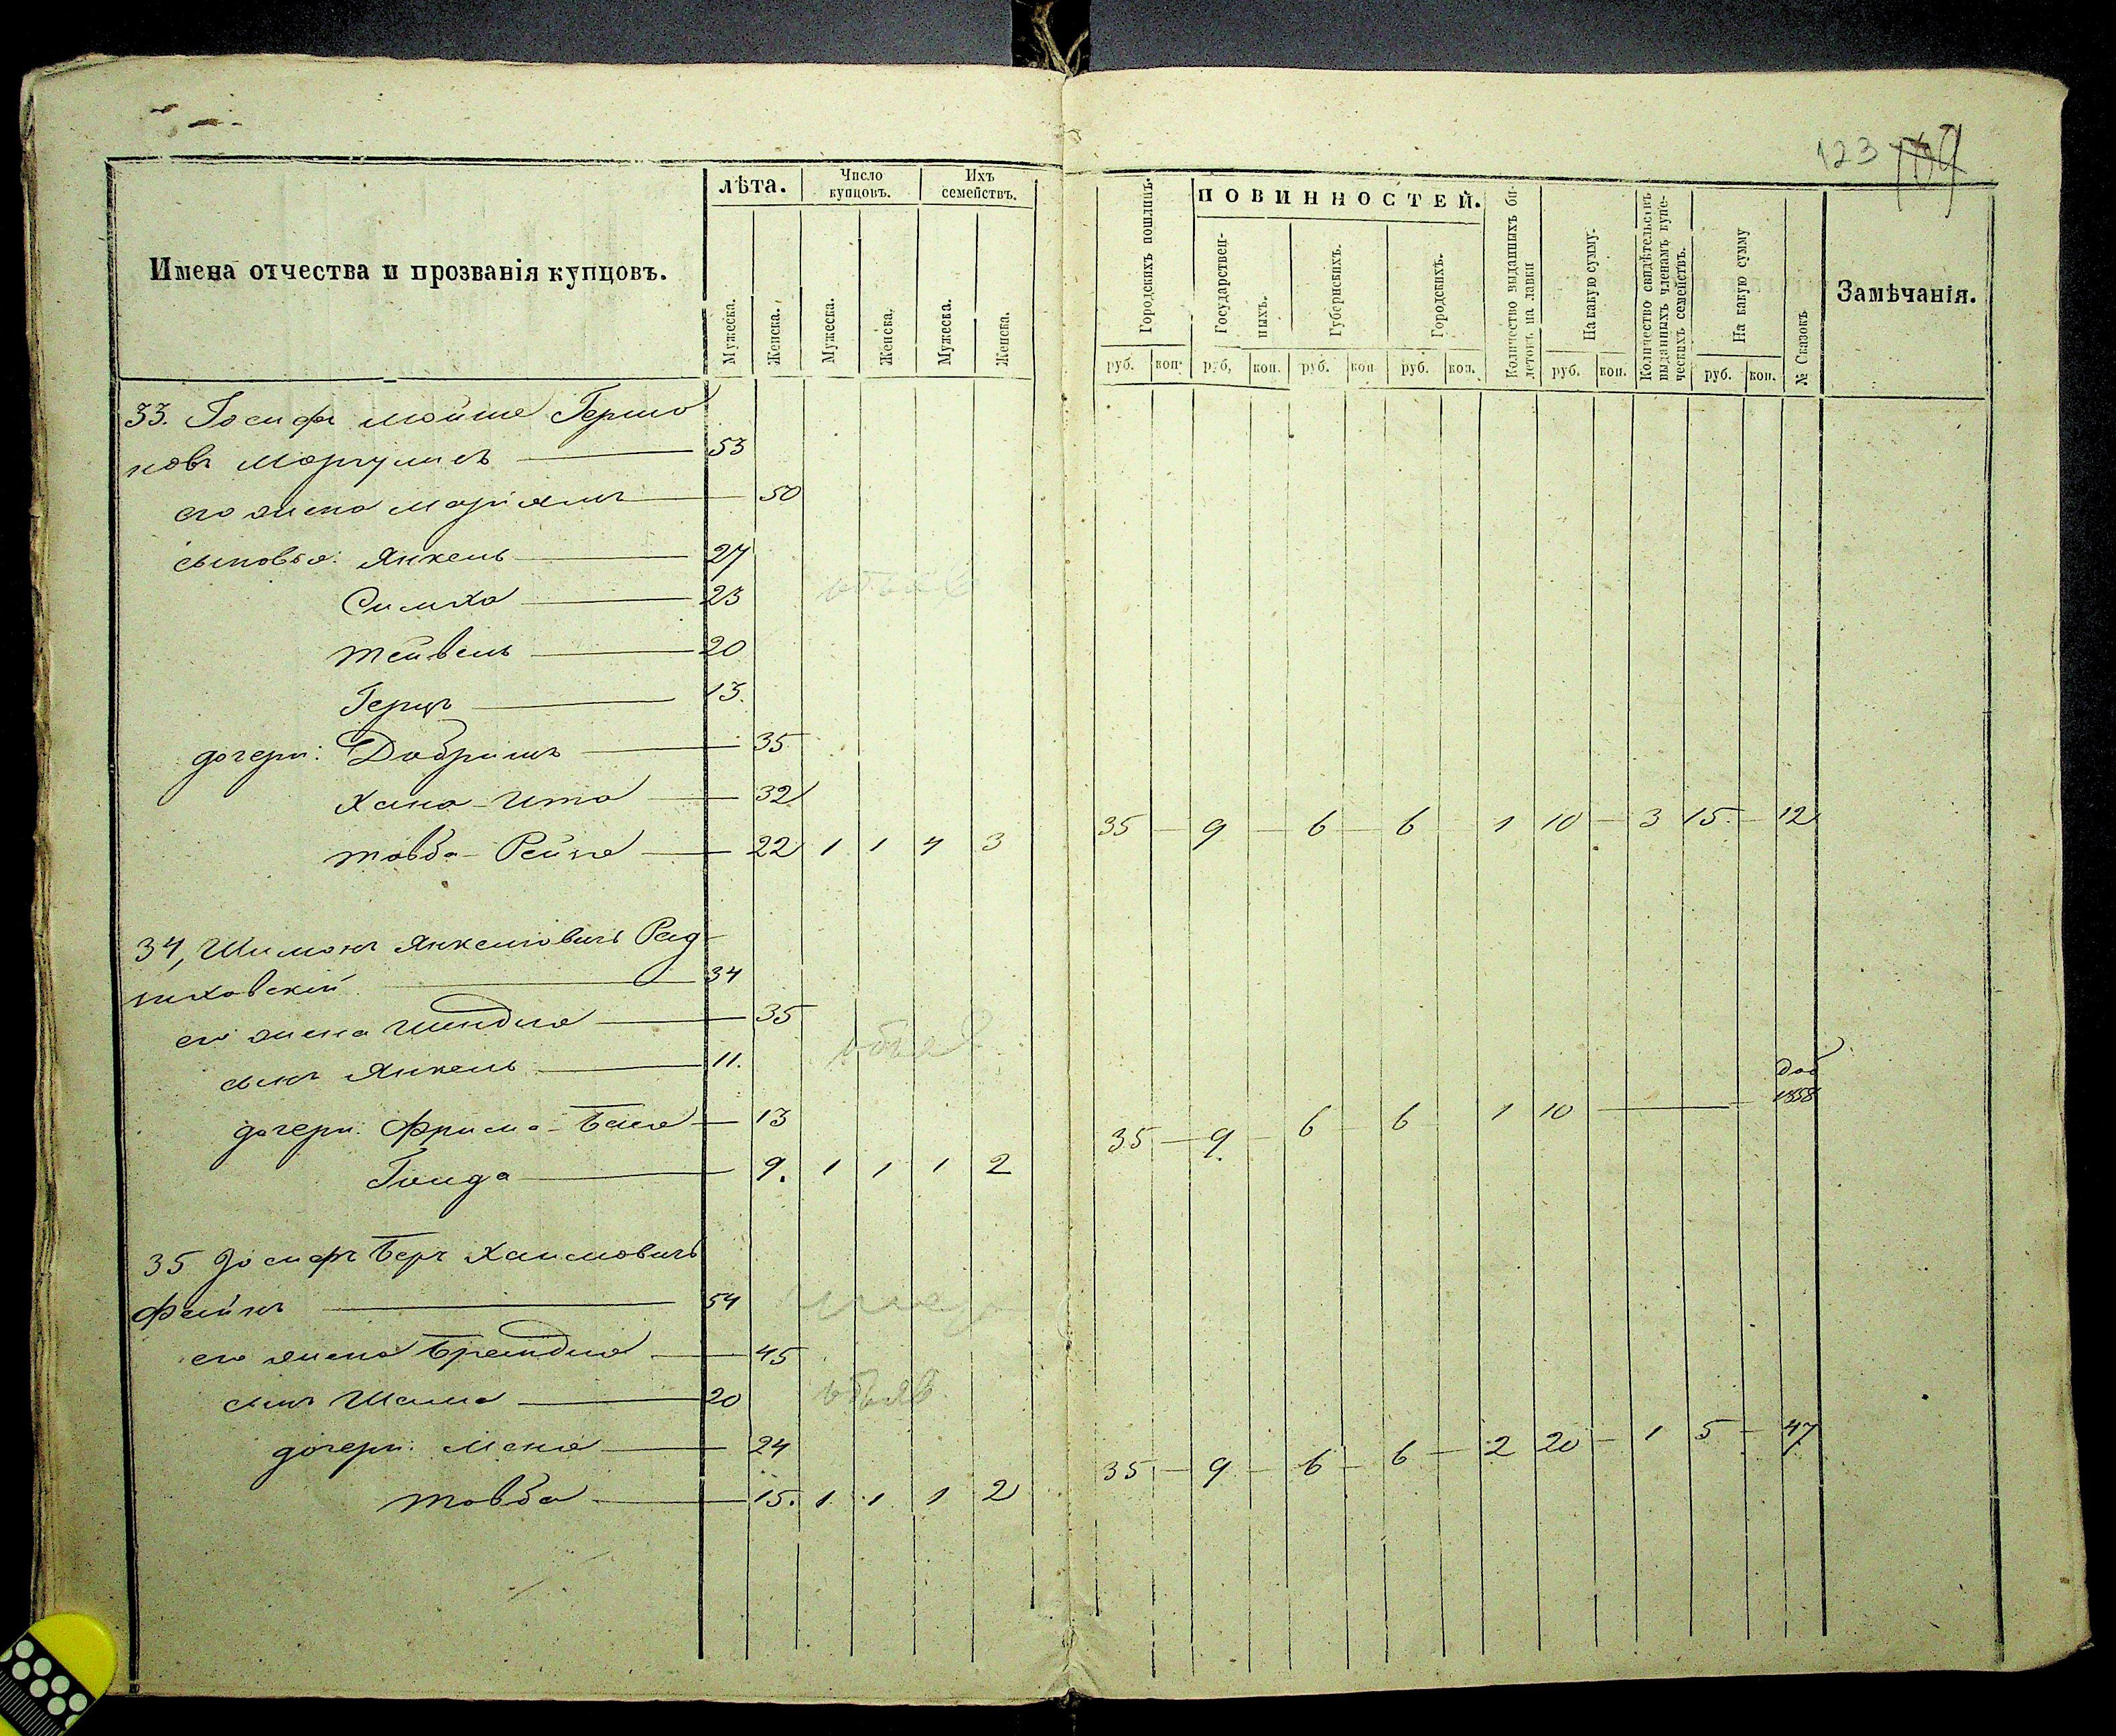 123 109
Имена отчества и прозванія купцовъ.
лѣта.
Мужеска.
Женска.
Число купцовъ.
Мужеска.
Женска.
Ихъ семействъ.
Мужеска.
Женска.
Городскихъ пошлинъ.
руб. коп.
ПОВИННОСТЕЙ.
Государственныхъ.
руб, коп.
Губернскихъ.
руб. коп
Городскихъ.
руб. коп.
Количество выданныхъ билетовъ на лавки
На какую сумму.
руб. коп.
Количество свидѣтельствъ выданныхъ членамъ купеческихъ семействъ.
На какую сумму
руб. коп.
№ Сказокъ
Замѣчанія.
33. Іосифъ Мойше Гершо
новъ Маргулисъ — 53
его жена Маріямъ — 50
сыновья: Янкель — 27
Симха — 23
объяв
Тейвель — 20
Герцъ — 13.
дочери: Добришъ — 35
Хана-Ита — 32
Товба-Рейза — 22 1 1 4 3 35 — 9 — 6 — 6 1 10 — 3 15 — 12
34, Шимонъ Янкелевичъ Рад
виховскій — 34
его жена Шендля — 35
объяв
сынъ Янкель — 11.
дочери: Фрума-Бася — 13
Гольда — 9. 1 1 1 2 35 — 9 — 6 — 6 1 10 — Доб 1858
35 Іосифъ Беръ Хаимовичъ
Файнъ — 54
его жена Брейндля — 45
сынъ Шама — 20
объяв
дочери: Меня — 24
Товба — 15. 1 1 1 2 35 — 9 — 6 — 6 — 2 20 — 1 5 — 47